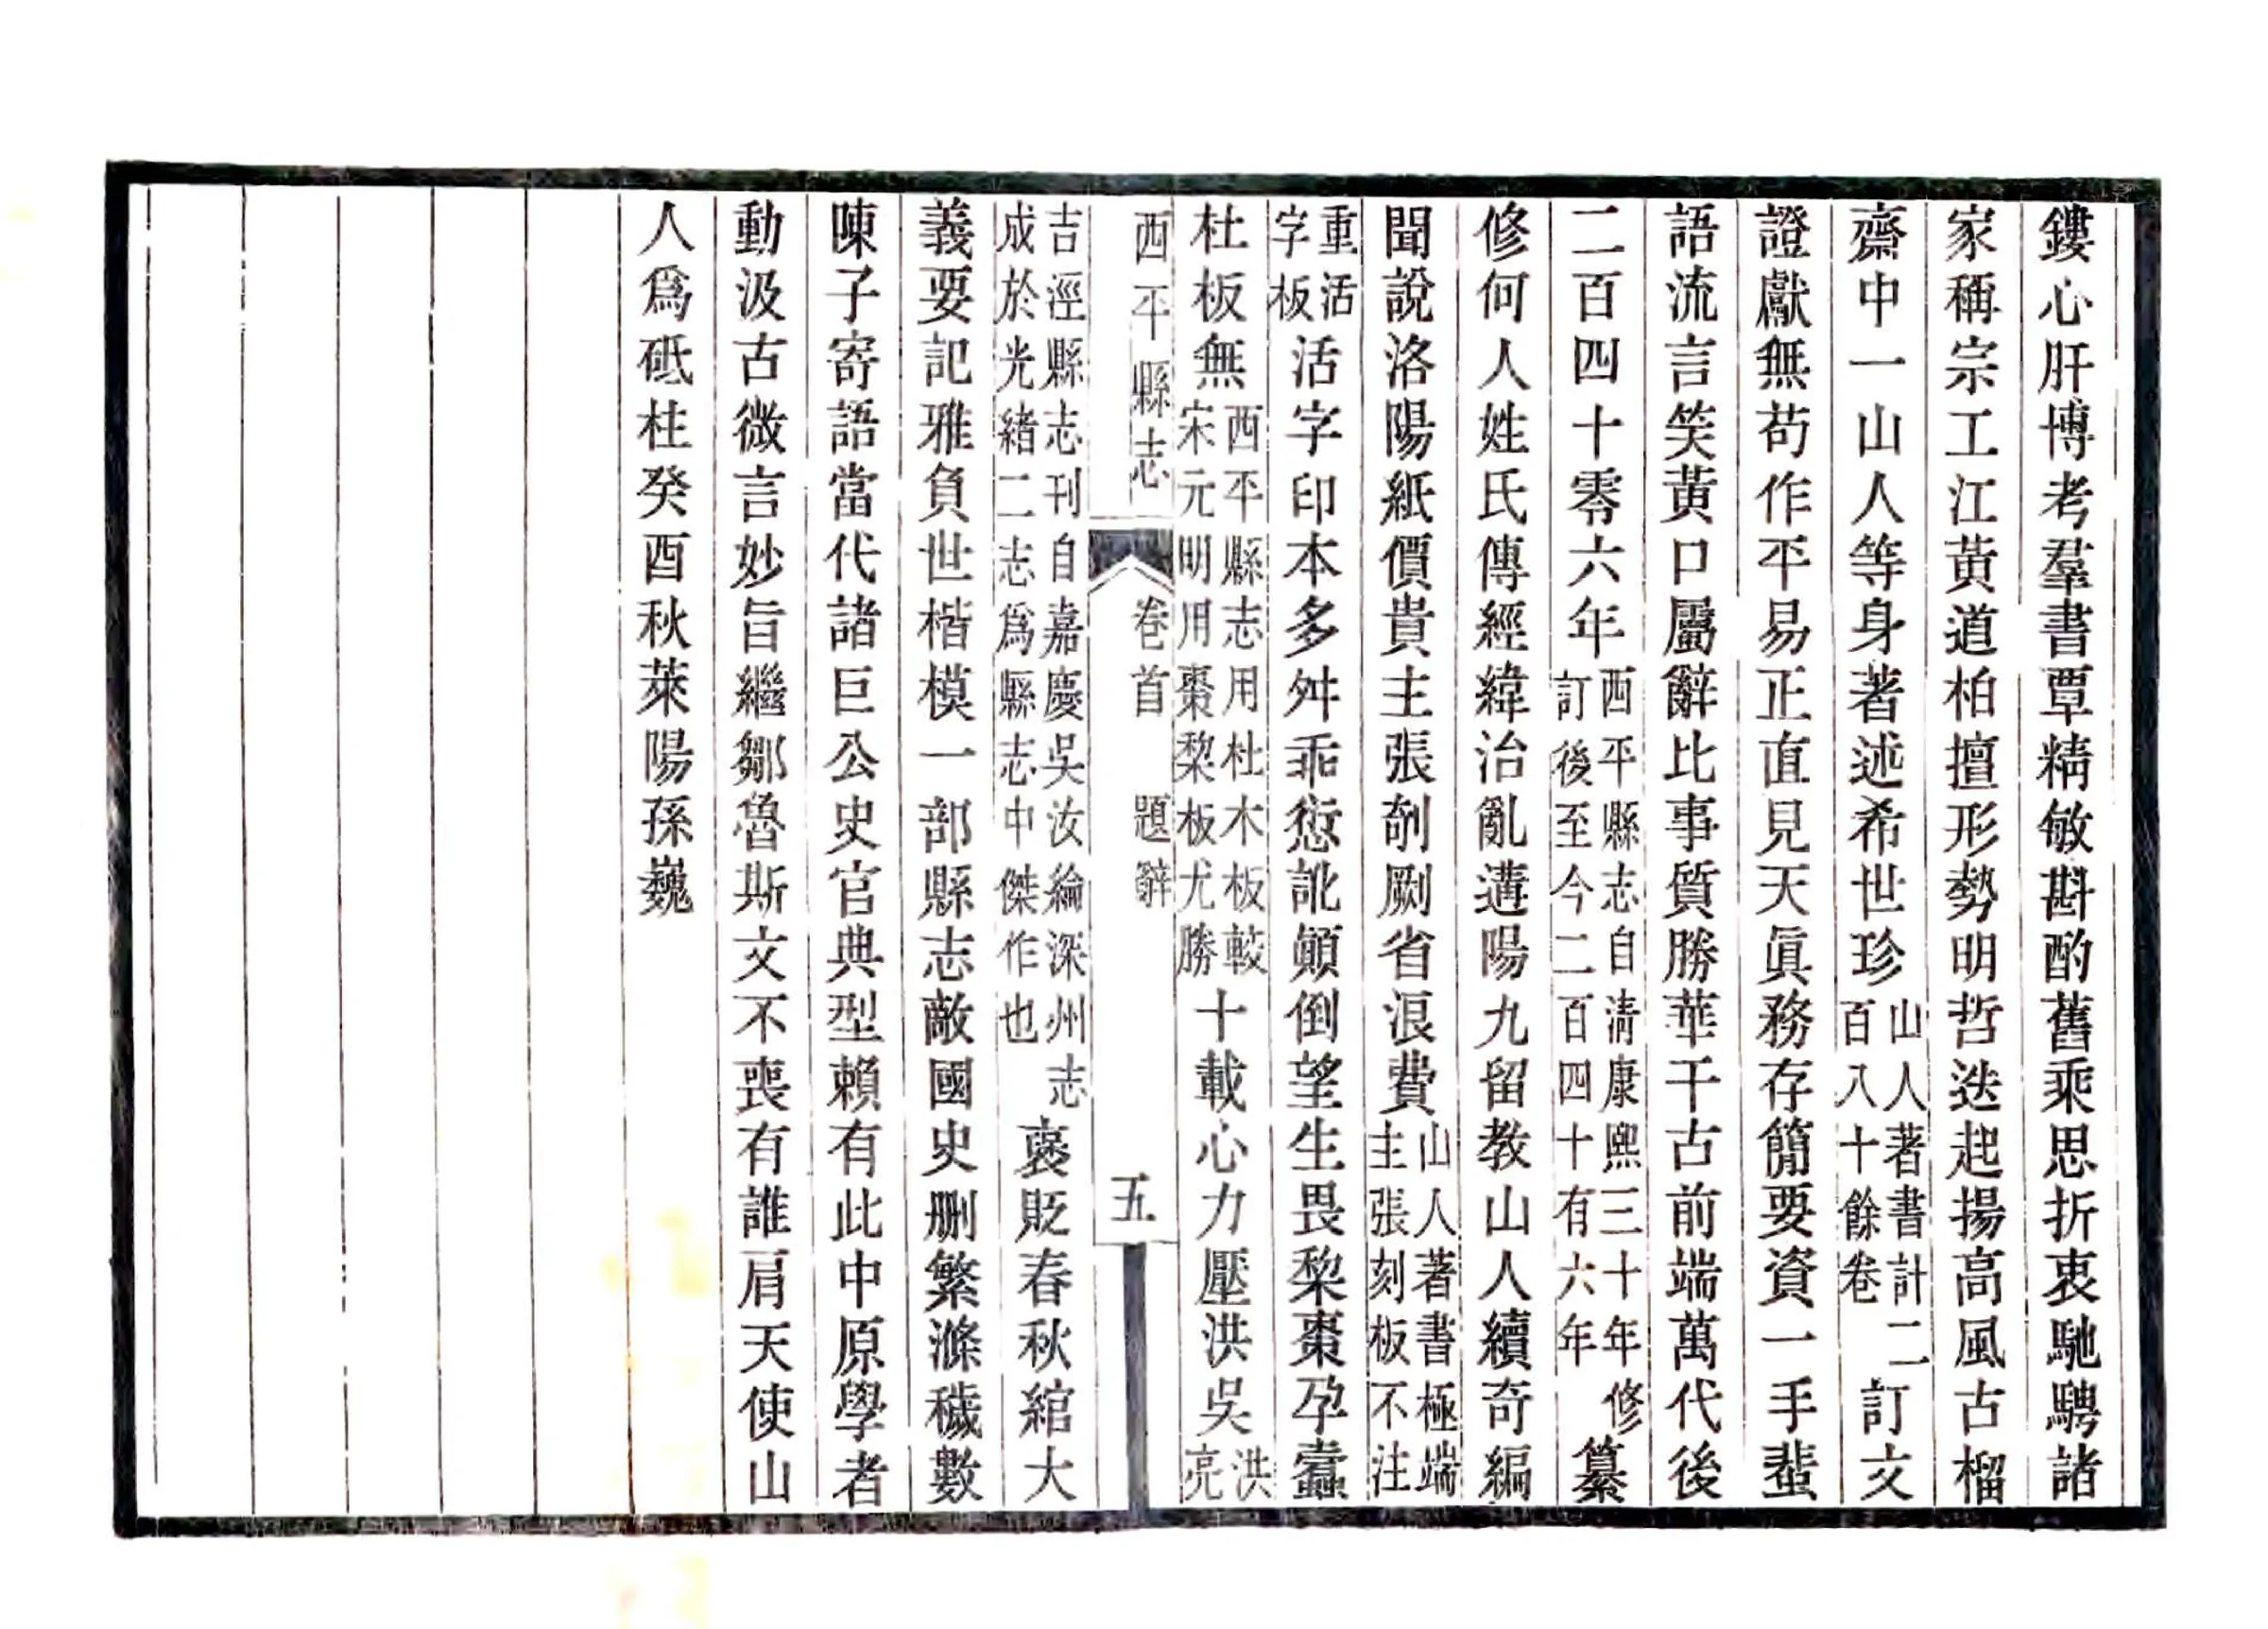 鏤心肝博考羣書覃精敏斟酌舊乘思折衷馳騁諸
家稱宗工江黃道柏擅形勢明哲迭起揚高風古榴
齋中一山人等身著述希世珍山人著書計二百八十餘卷訂文
證獻無苟作平易正直見天眞務存簡要資一手蜚
語流言笑黃口屬辭比事質勝華千古前端萬代後
二百四十零六年西平縣志自淸康熙三十年修訂後至今二百四十有六年纂
修何人姓氏傳經緯治亂遘陽九留教山人續奇編
聞說洛陽紙價貴主張剞劂省浪費山人著書極端主張刻板不注
重活字板活字印本多舛乖愆訛顚倒望生畏黎棗孕蠹
杜板無西平縣志用杜木板較宋元明用棗黎板尤勝十載心力壓洪吳洪亮
西平縣志 卷首 題辭 五
吉涇縣志刊自嘉慶吳汝綸深州志成於光緒二志爲縣志中傑作也褒貶春秋綰大
義要記雅負世楷模一部縣志敵國史删繁滌穢數
陳子寄語當代諸巨公史官典型賴有此中原學者
動汲古微言妙旨繼鄒魯斯文不喪有誰肩天使山
人爲砥柱癸酉秋萊陽孫巍